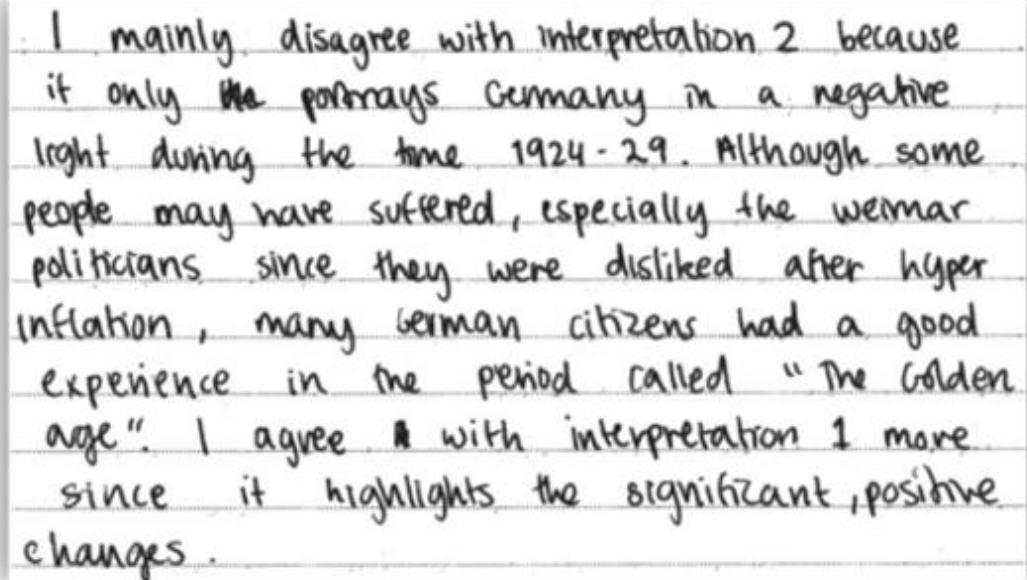 I mainly disagree with interpretation 2 because
it only portrays Germany in a negative
light during the time 1924-29. Although some
people may have suffered, especially the weimar
politicians since they were disliked after hyper
inflation, many German citizens had a good
experience in the period called "The Golden
age". I agree with interpretation 1 more
since it highlights the significant, positive
changes.